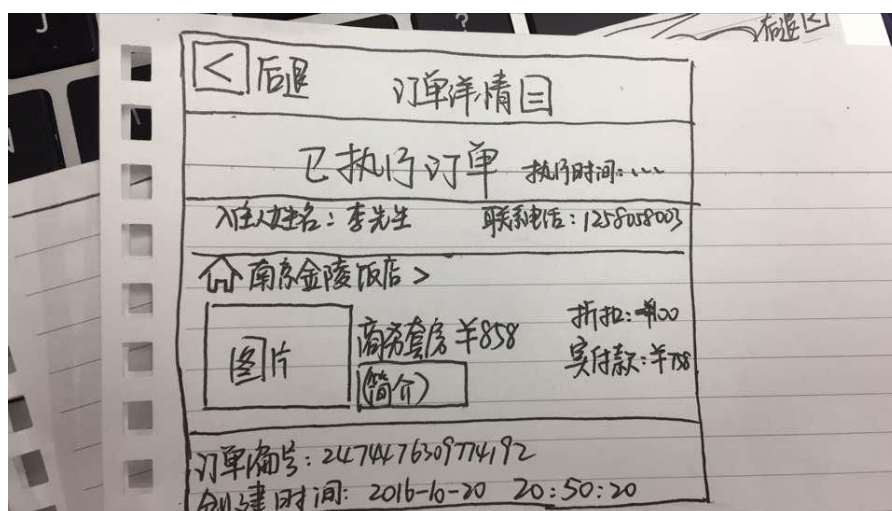 后退
后退 订单详情
已执行订单 执行时间:...
入住人姓名:李先生 联系电话:1258058003
南京金陵饭店 >
商务套房 ¥858 折扣:-¥100
图片 实付款:¥758
(简介)
订单编号:2474476309774192
创建时间: 2016-10-20 20:50:20